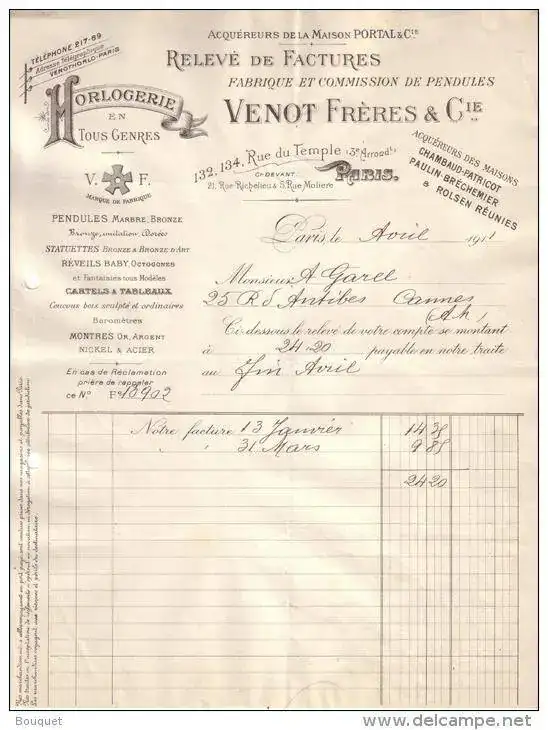 ACQUÉREURS DE LA MAISON PORTAL & CIE
RELEVÉ DE FACTURES
FABRIQUE ET COMMISSION DE PENDULES
VENOT FRÈRES & CIE
132, 134, Rue du Temple (3e Arrondt)
CI-DEVANT
21, Rue Richelieu & 5, Rue Molière
PARIS.
ACQUÉREURS DES MAISONS
CHAMBAUD-PATRICOT
PAULIN-BRÉCHEMIER
& ROLSEN RÉUNIES
TÉLÉPHONE 217-69
Adresse Télégraphique
VENOTHORLO-PARIS
HORLOGERIE
EN
TOUS GENRES
V. F.
MARQUE DE FABRIQUE
PENDULES, MARBRE, BRONZE
Bronze, imitation Dorées
STATUETTES BRONZE & BRONZE D'ART
RÉVEILS BABY, OCTOGONES
et Fantaisies tous Modèles
CARTELS & TABLEAUX
Coucous bois sculpté et ordinaires
Baromètres
MONTRES OR, ARGENT
NICKEL & ACIER
En cas de Réclamation
prière de rappeler
ce No Fo 13902
Paris, le Avril 1911
Monsieur A Garel
25 R d'Antibes Cannes
(A.M.)
Ci-dessous le relevé de votre compte se montant
à 24.20 payable en notre traite
au Fin Avril
Notre facture 13 Janvier 14 35
" " 31 Mars 9 85
24 20
Bouquet
www.delcampe.net